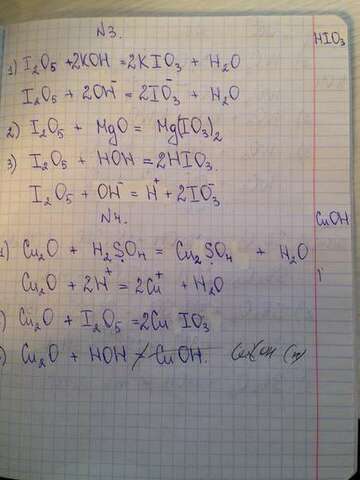 N3.
HIO₃
1) I₂O₅ + 2KOH = 2KIO₃ + H₂O
I₂O₅ + 2OH⁻ = 2IO₃⁻ + H₂O
2) I₂O₅ + MgO = Mg(IO₃)₂
3) I₂O₅ + HOH = 2HIO₃.
I₂O₅ + OH⁻ = H⁺ + 2IO₃⁻
N4.
CuOH
1) Cu₂O + H₂SO₄ = Cu₂SO₄ + H₂O
Cu₂O + 2H⁺ = 2Cu⁺ + H₂O
) Cu₂O + I₂O₅ = 2Cu IO₃
) Cu₂O + HOH ≠ CuOH.